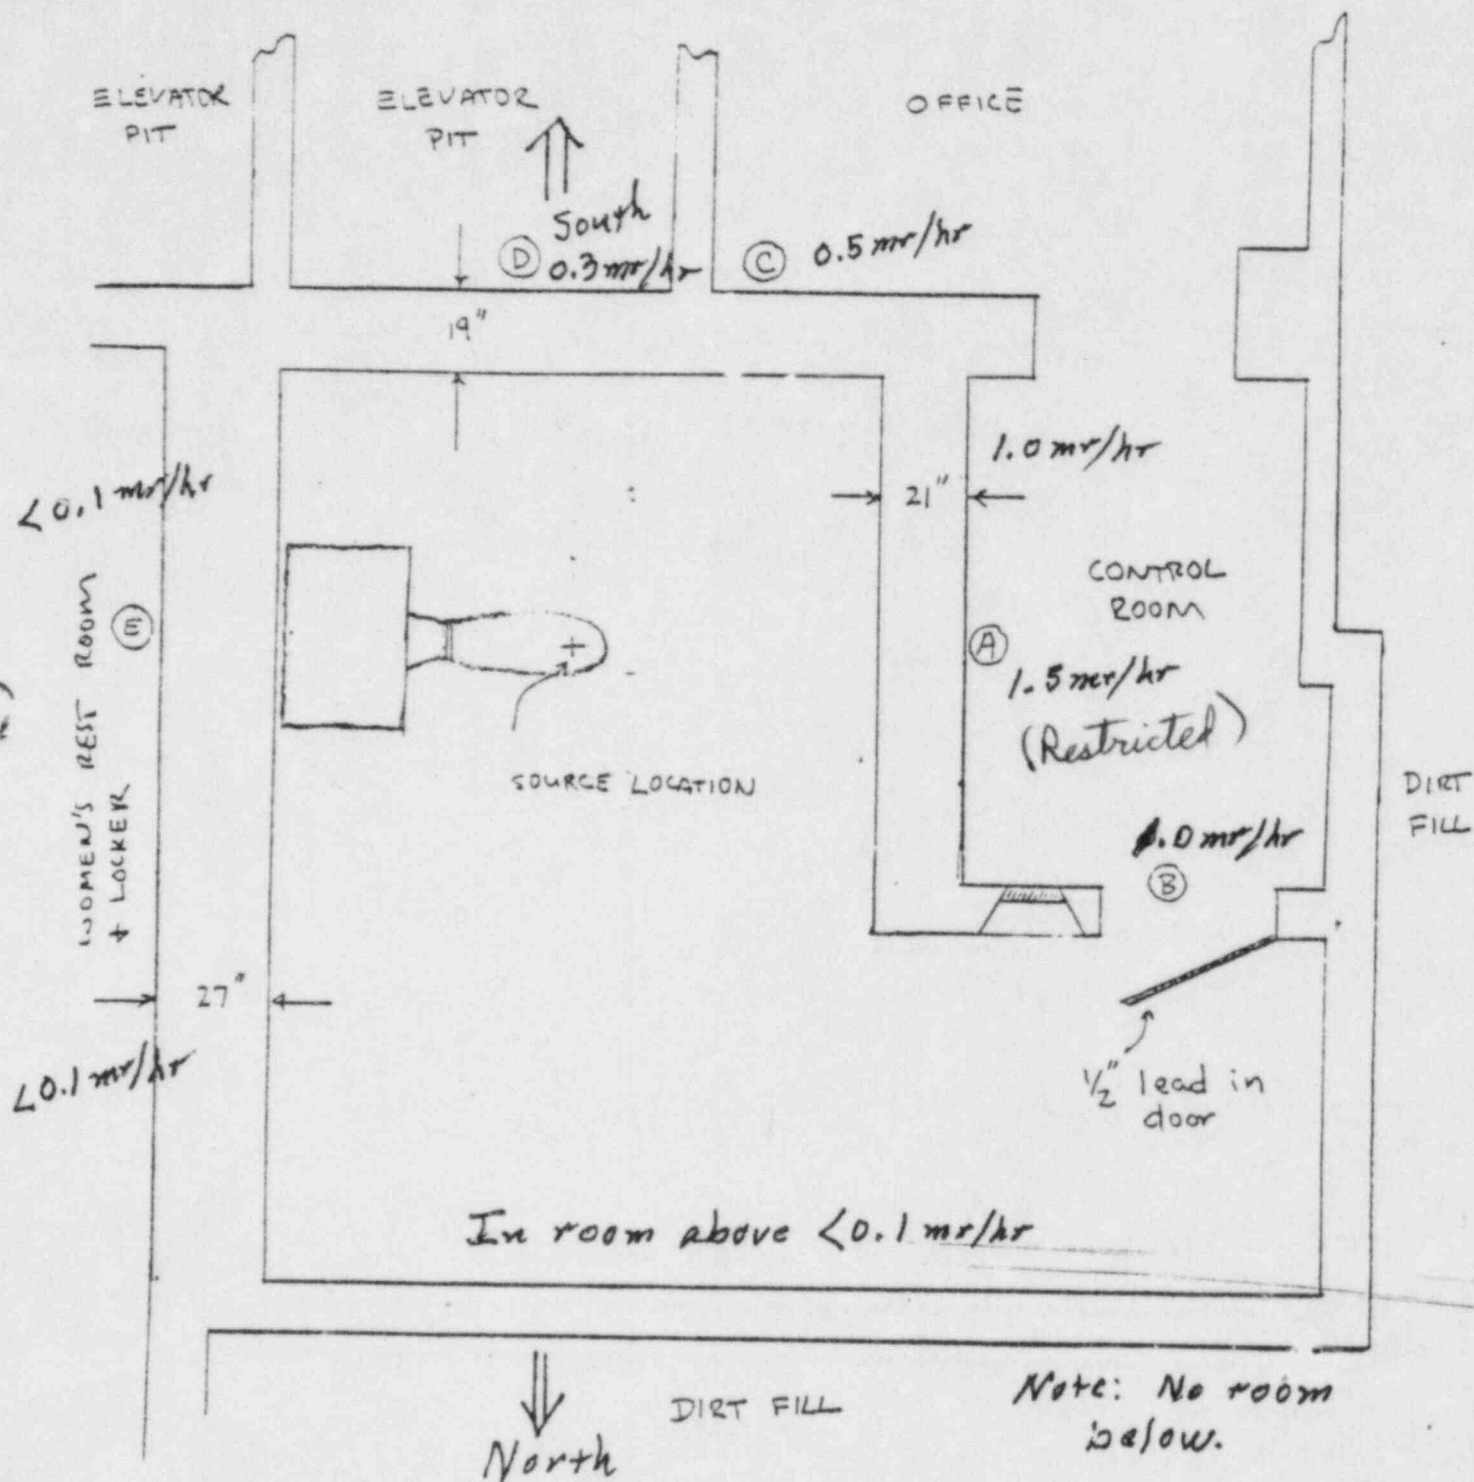 ELEVATOR
PIT
ELEVATOR
PIT
OFFICE
South
D
0.3 mr/hr
C
0.5 mr/hr
19"
1.0 mr/hr
<0.1 mr/hr
21"
CONTROL
ROOM
E
A
1.5 mr/hr
(Restricted)
WOMEN'S REST ROOM
+ LOCKER
SOURCE LOCATION
DIRT
FILL
1.0 mr/hr
B
27"
<0.1 mr/hr
1/2" lead in
door
In room above <0.1 mr/hr
North
DIRT FILL
Note: No room
below.